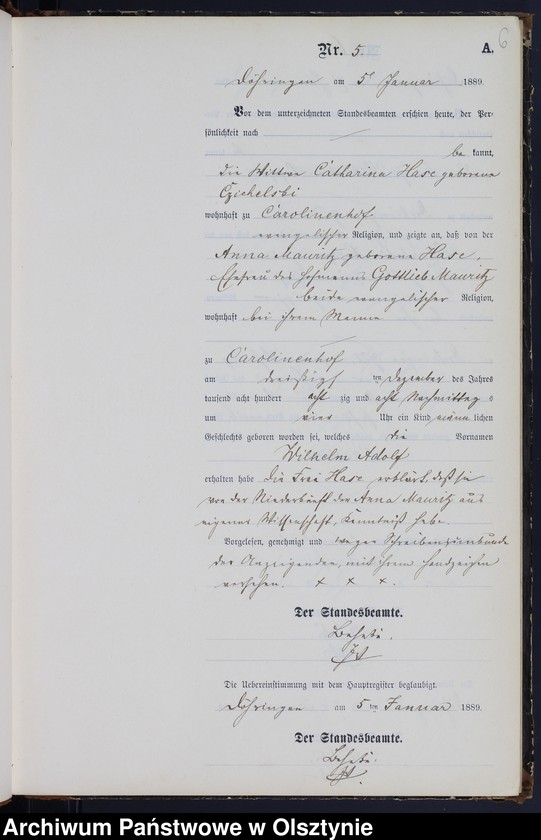 6
Nr. 5. A.
Döhringen am 5t Januar 1889.
Vor dem unterzeichneten Standesbeamten erschien heute, der Per-
sönlichkeit nach
be kannt,
die Wittwe Catharina Hase geborene
Czichelski
wohnhaft zu Carolinenhof.
evangelischer Religion, und zeigte an, daß von der
Anna Mauritz geborene Hase,
Ehefrau des Hofmanns Gottlieb Mauritz
beide evangelischer Religion,
wohnhaft bei ihrem Manne
zu Carolinenhof
am dreißigst ten Dezember des Jahres
tausend acht hundert acht zig und acht Nachmittag s
um vier Uhr ein Kind männ lichen
Geschlechts geboren worden sei, welches die Vornamen
Wilhelm Adolf
erhalten habe die Frau Hase erklärt, daß sie
von der Niederkunft der Anna Mauritz aus
eigener Wissenschaft, Kenntniß habe.
Vorgelesen, genehmigt und wegen Schreibensunkunde
der Anzeigenden, mit ihrem Handzeichen
versehen. x x x.
Der Standesbeamte.
Die Uebereinstimmung mit dem Hauptregister beglaubigt.
Döhringen am 5 ten Januar 1889.
Der Standesbeamte.
Archiwum Państwowe w Olsztynie